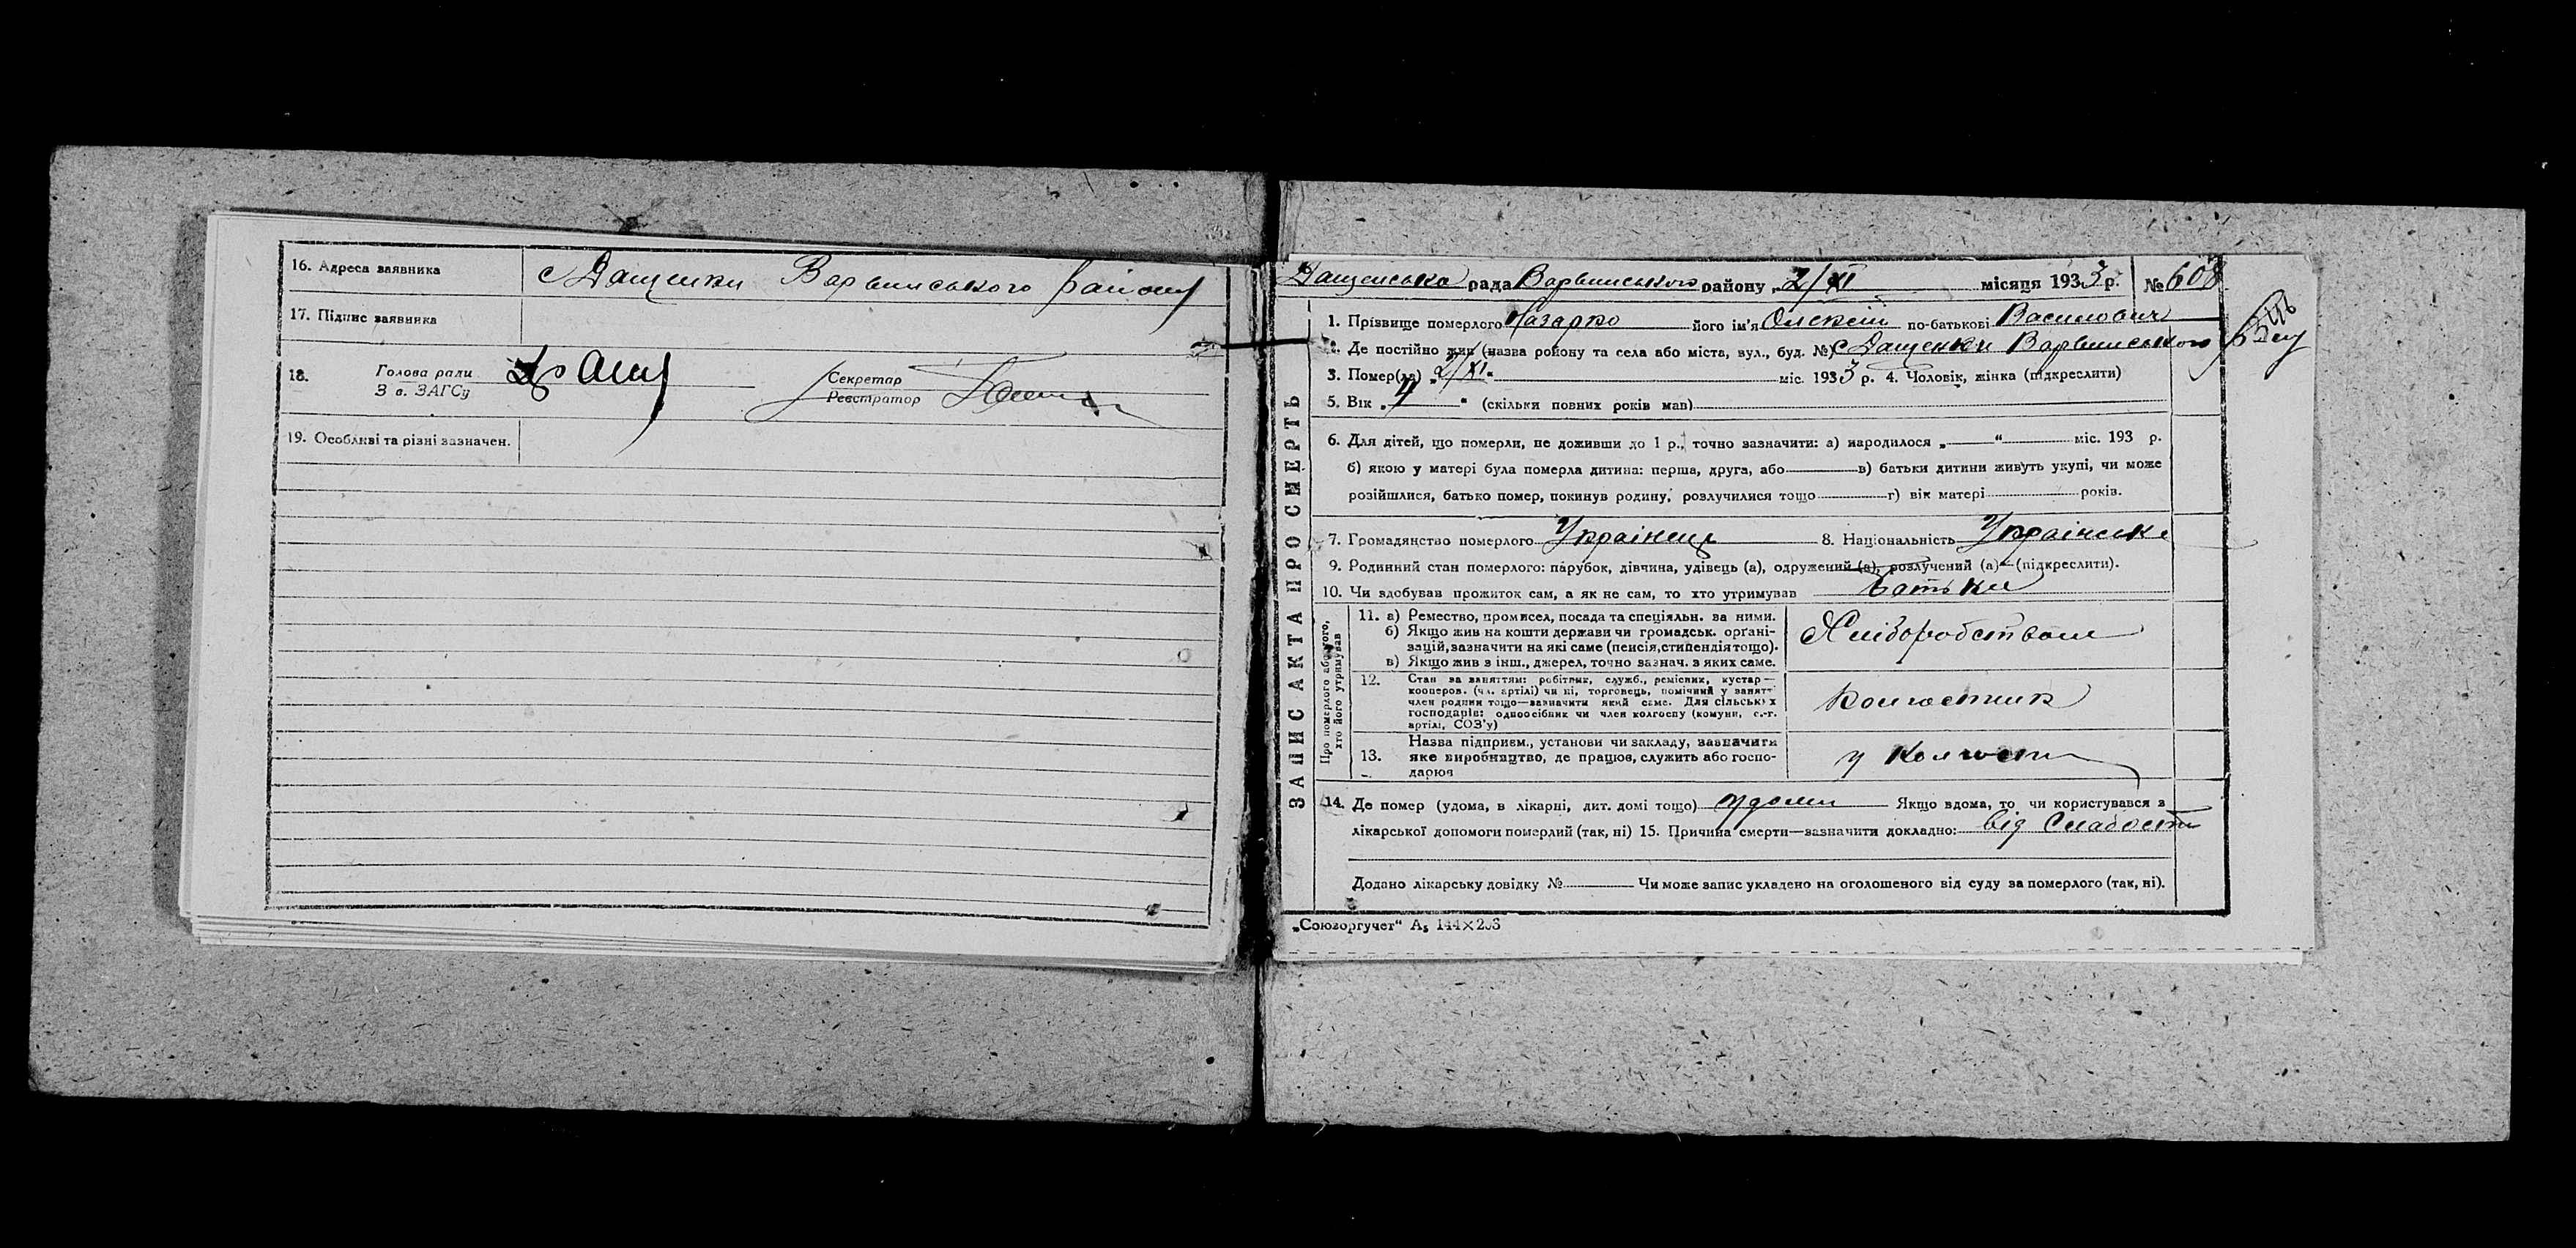 16. Адреса заявника с Дащенки Варвинського району
17. Підпис заявника
18. Голова ради
З в. ЗАГСу
Секретар
Реєстратор
19. Особливі та різні зазначен.
ЗАПИС АКТА ПРО СМЕРТЬ
Дащенська рада Варвинського району „2/XI місяця 1933 р. № 608
1. Прізвище померлого Назарко його ім'я Олексій по-батькові Василович
2. Де постійно жив (назва району та села або міста, вул., буд. №) с Дащенки Варвинського
3. Помер(ла) „2/XI“ міс. 1933 р. 4. Чоловік, жінка (підкреслити)
5. Вік „4“ (скільки повних років мав)
6. Для дітей, що померли, не доживши до 1 р., точно зазначити: а) народилося „ “ міс. 193 р.
б) якою у матері була померла дитина: перша, друга, або в) батьки дитини живуть укупі, чи може
розійшлися, батько помер, покинув родину, розлучилися тощо г) вік матері років.
7. Громадянство померлого Українець 8. Національність
9. Родинний стан померлого: парубок, дівчина, удівець (а), одружений (а), розлучений (а) (підкреслити).
10. Чи здобував прожиток сам, а як не сам, то хто утримував Батьки
Про померлого або того,
хто його утримував
11. а) Ремество, промисел, посада та спеціяльн. за ними.
б) Якщо жив на кошти держави чи громадськ. орґані-
зацій, зазначити на які саме (пенсія, стипендія тощо).
в) Якщо жив з інш., джерел, точно зазнач. з яких саме.
Хліборобством
12. Стан за заняттям: робітник, служб., ремісник, кустар—
кооперов. (чл. артілі) чи ні, торговець, помічний у занятт
член родини тощо—зазначити який саме. Для сільських
господарів: одноосібник чи член колгоспу (комуни, с.-г.
артілі, СОЗ'у)
Колгоспник
13. Назва підприєм., установи чи закладу, зазначити
яке виробництво, де працює, служить або госпо-
дарює
у колгоспи
14. Де помер (удома, в лікарні, дит. домі тощо) удоми Якщо вдома, то чи користувався з
лікарської допомоги померлий (так, ні) 15. Причина смерти—зазначити докладно: від Слабости
Додано лікарську довідку № Чи може запис укладено на оголошеного від суду за померлого (так, ні).
„Союзоргучет“ А₅ 144×203